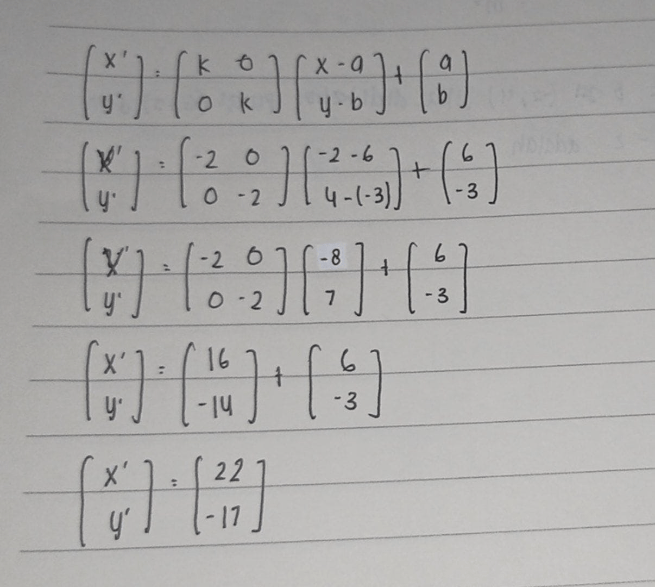 [x' y'] = [k 0 0 k] [x - a y - b] + [a b]
[x' y'] = [-2 0 0 -2] [-2 - 6 4 - (-3)] + [6 -3]
[x' y'] = [-2 0 0 -2] [-8 7] + [6 -3]
[x' y'] = [16 -14] + [6 -3]
[x' y'] = [22 -17]